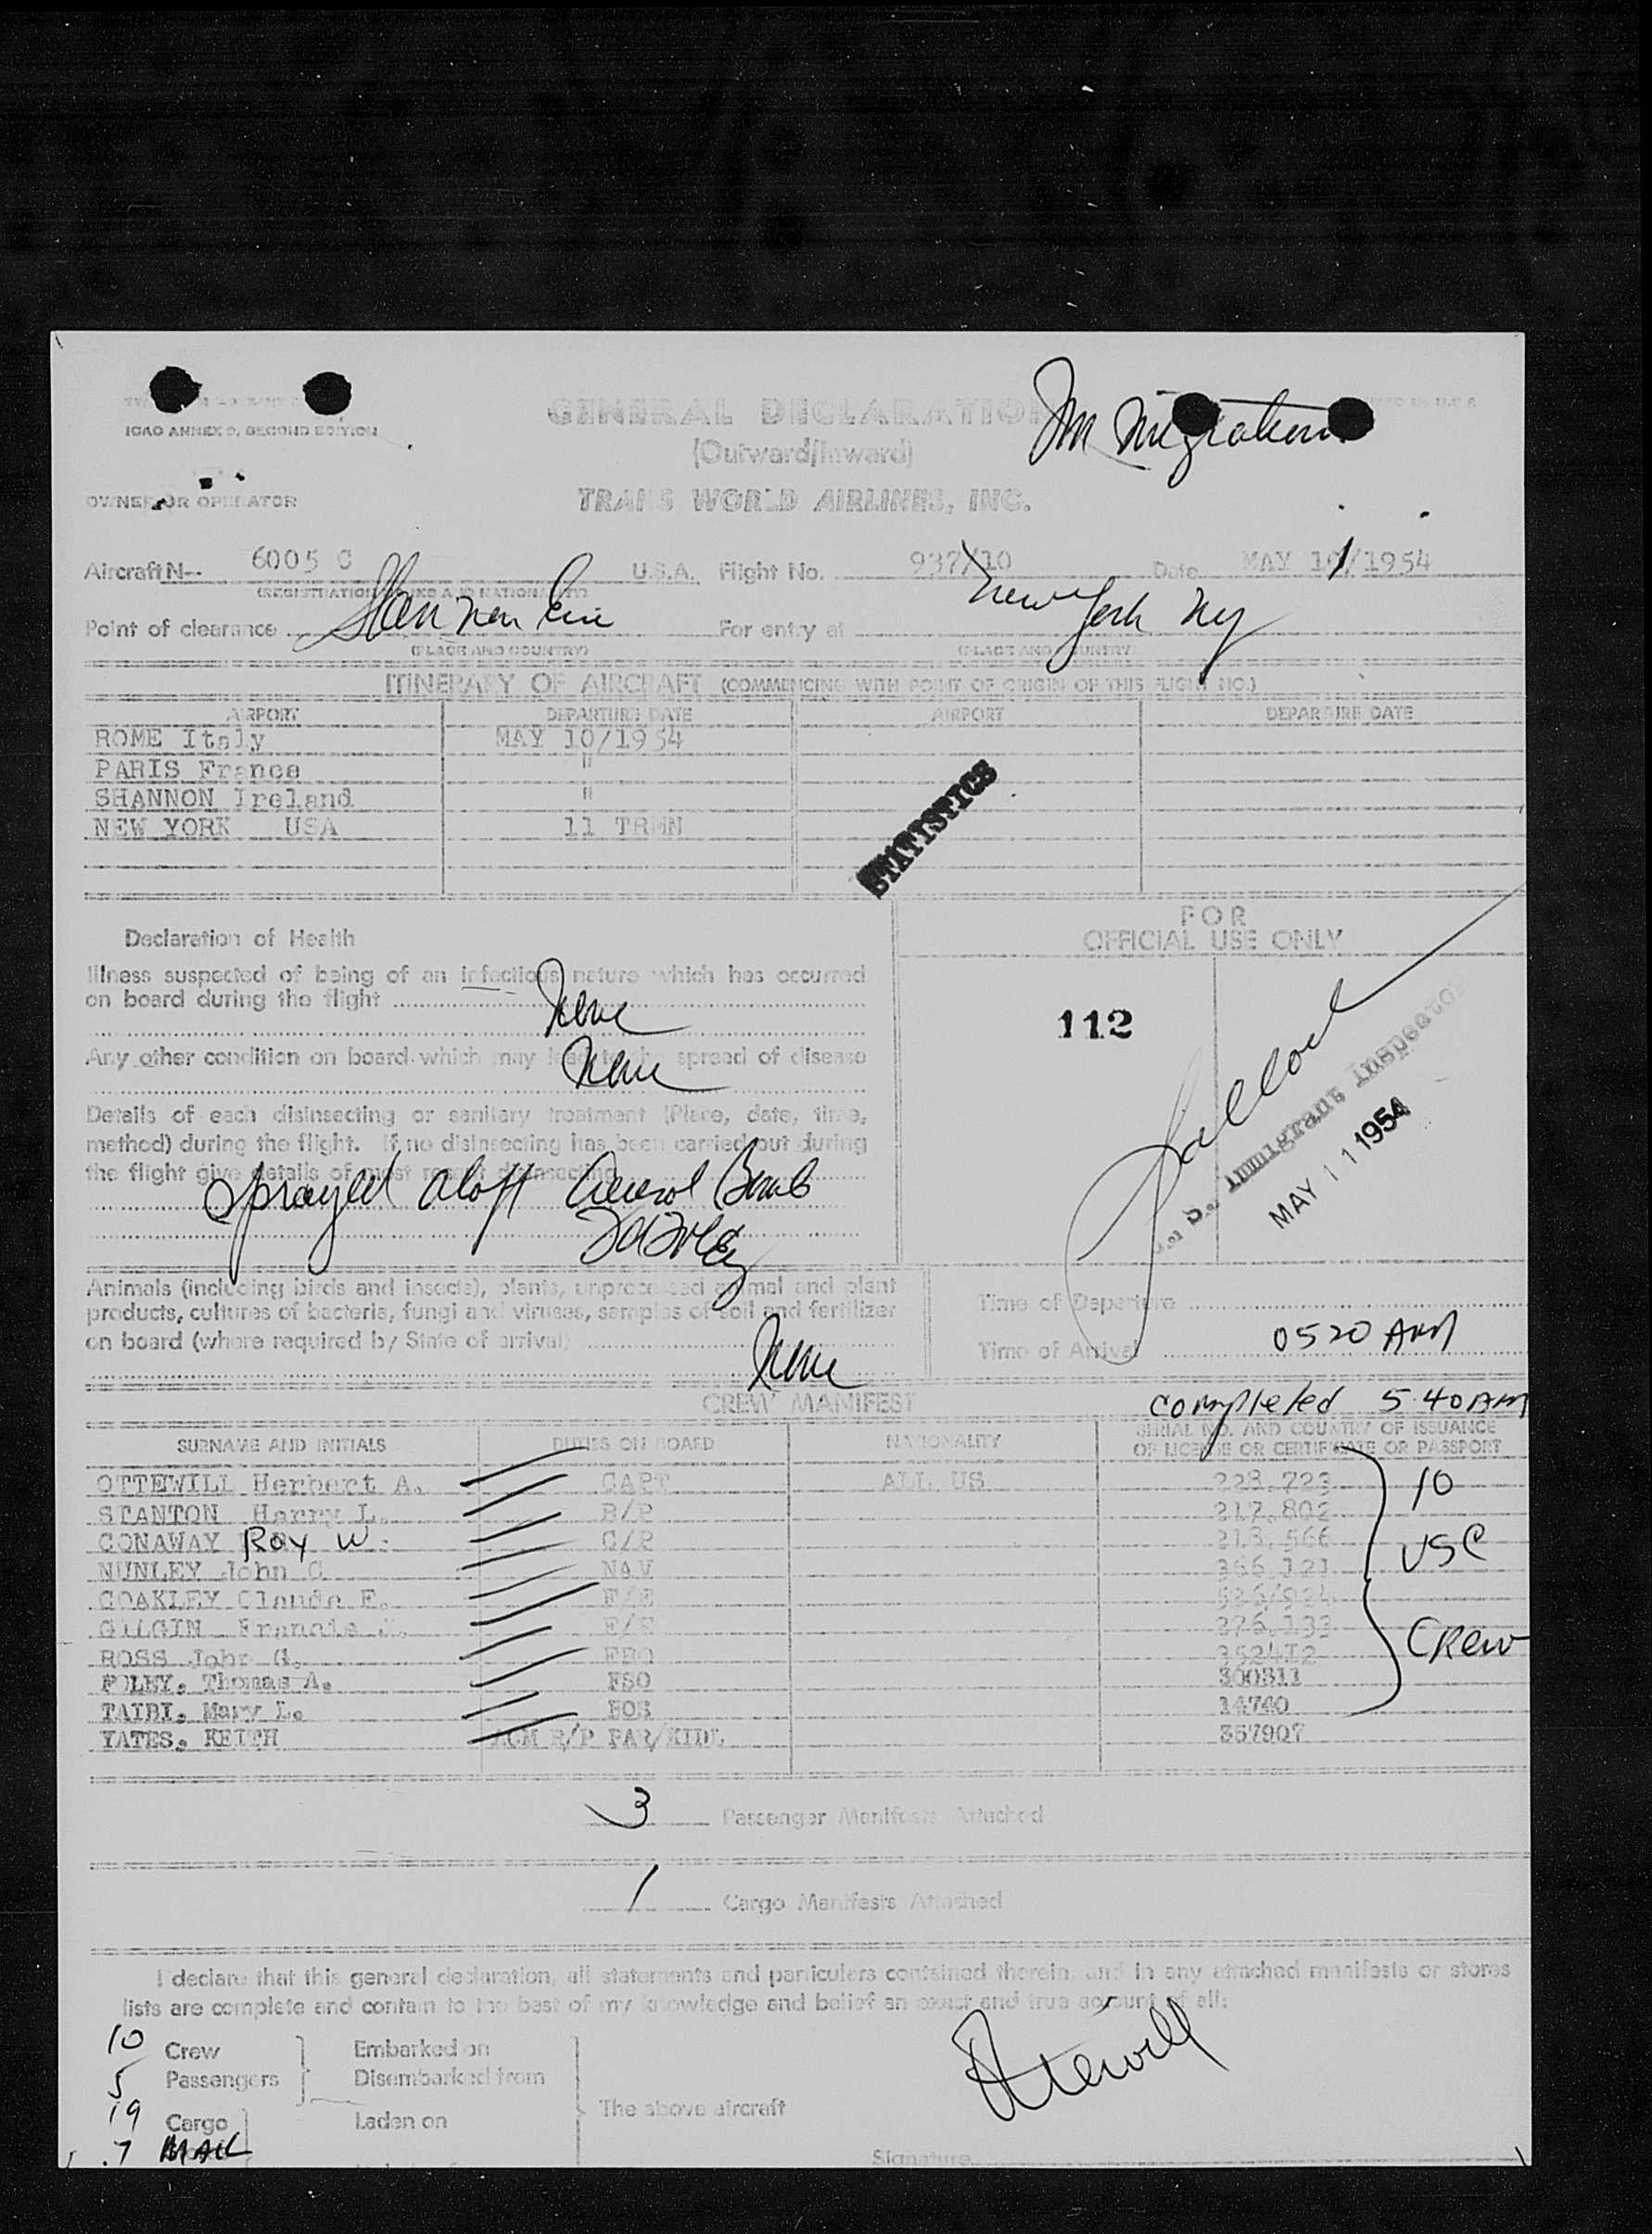 ICAO ANNEX 9, SECOND EDITION
GENERAL DECLARATION
Immigration
(Outward/Inward)
OWNER OR OPERATOR
TRANS WORLD AIRLINES, INC.
Aircraft N-- 6005 C U.S.A. Flight No. 937/10 Date MAY 10/1954
(REGISTRATION MARKS AND NATIONALITY)
Point of clearance Shannon Eire For entry at New York NY
(PLACE AND COUNTRY) (PLACE AND COUNTRY)
ITINERARY OF AIRCRAFT (COMMENCING WITH POINT OF ORIGIN OF THIS FLIGHT NO.)
AIRPORT DEPARTURE DATE AIRPORT DEPARTURE DATE
ROME Italy MAY 10/1954
PARIS France "
SHANNON Ireland "
NEW YORK USA 11 TRMN
STATISTICS
FOR
OFFICIAL USE ONLY
Declaration of Health
Illness suspected of being of an infectious nature which has occurred
on board during the flight
None
Any other condition on board which may lead to the spread of disease
None
Details of each disinsecting or sanitary treatment (Place, date, time,
method) during the flight. If no disinsecting has been carried out during
the flight give details of most recent disinsecting
Sprayed aloft Aerosol Bomb
112
U. S. Immigrant Inspector
MAY 11 1954
Animals (including birds and insects), plants, unprocessed animal and plant
products, cultures of bacteria, fungi and viruses, samples of soil and fertilizer
on board (where required by State of arrival)
None
Time of Departure
Time of Arrival 0520 AM
completed 5:40 AM
CREW MANIFEST
SURNAME AND INITIALS DUTIES ON BOARD NATIONALITY SERIAL NO. AND COUNTRY OF ISSUANCE
OF LICENSE OR CERTIFICATE OR PASSPORT
OTTEWILL Herbert A. CAPT ALL US 228,723
STANTON Harry L. R/P 217,802
CONAWAY Roy W. C/P 218,566
NUNLEY John C NAV 366 121
COAKLEY Claude E. F/E 526/924
GILGIN Francis F/E 276,133
ROSS John G. 352412
FOLEY, Thomas A. FSO 300311
TAIBI, Mary L. HOS 14740
YATES, KEITH ACM R/P PAR/KIDL 357907
10
USC
Crew
3 Passenger Manifests Attached
1 Cargo Manifests Attached
I declare that this general declaration, all statements and particulars contained therein, and in any attached manifests or stores
lists are complete and contain to the best of my knowledge and belief an exact and true account of all:
10 Crew Embarked on
5 Passengers Disembarked from
The above aircraft
19 Cargo Laden on
7 MAIL
Ottewill
Signature